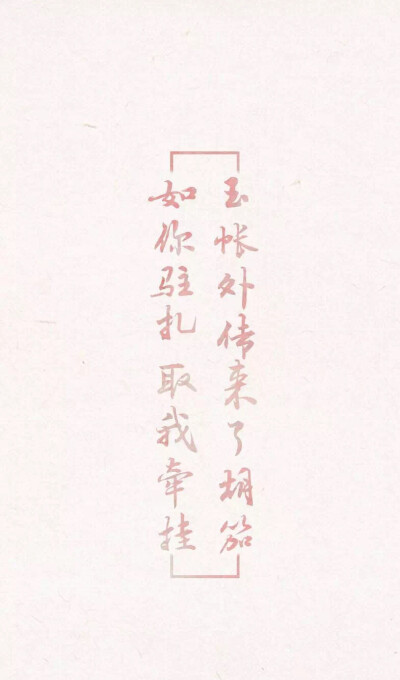 玉帐外传来了胡笳
如你驻扎 取我牵挂